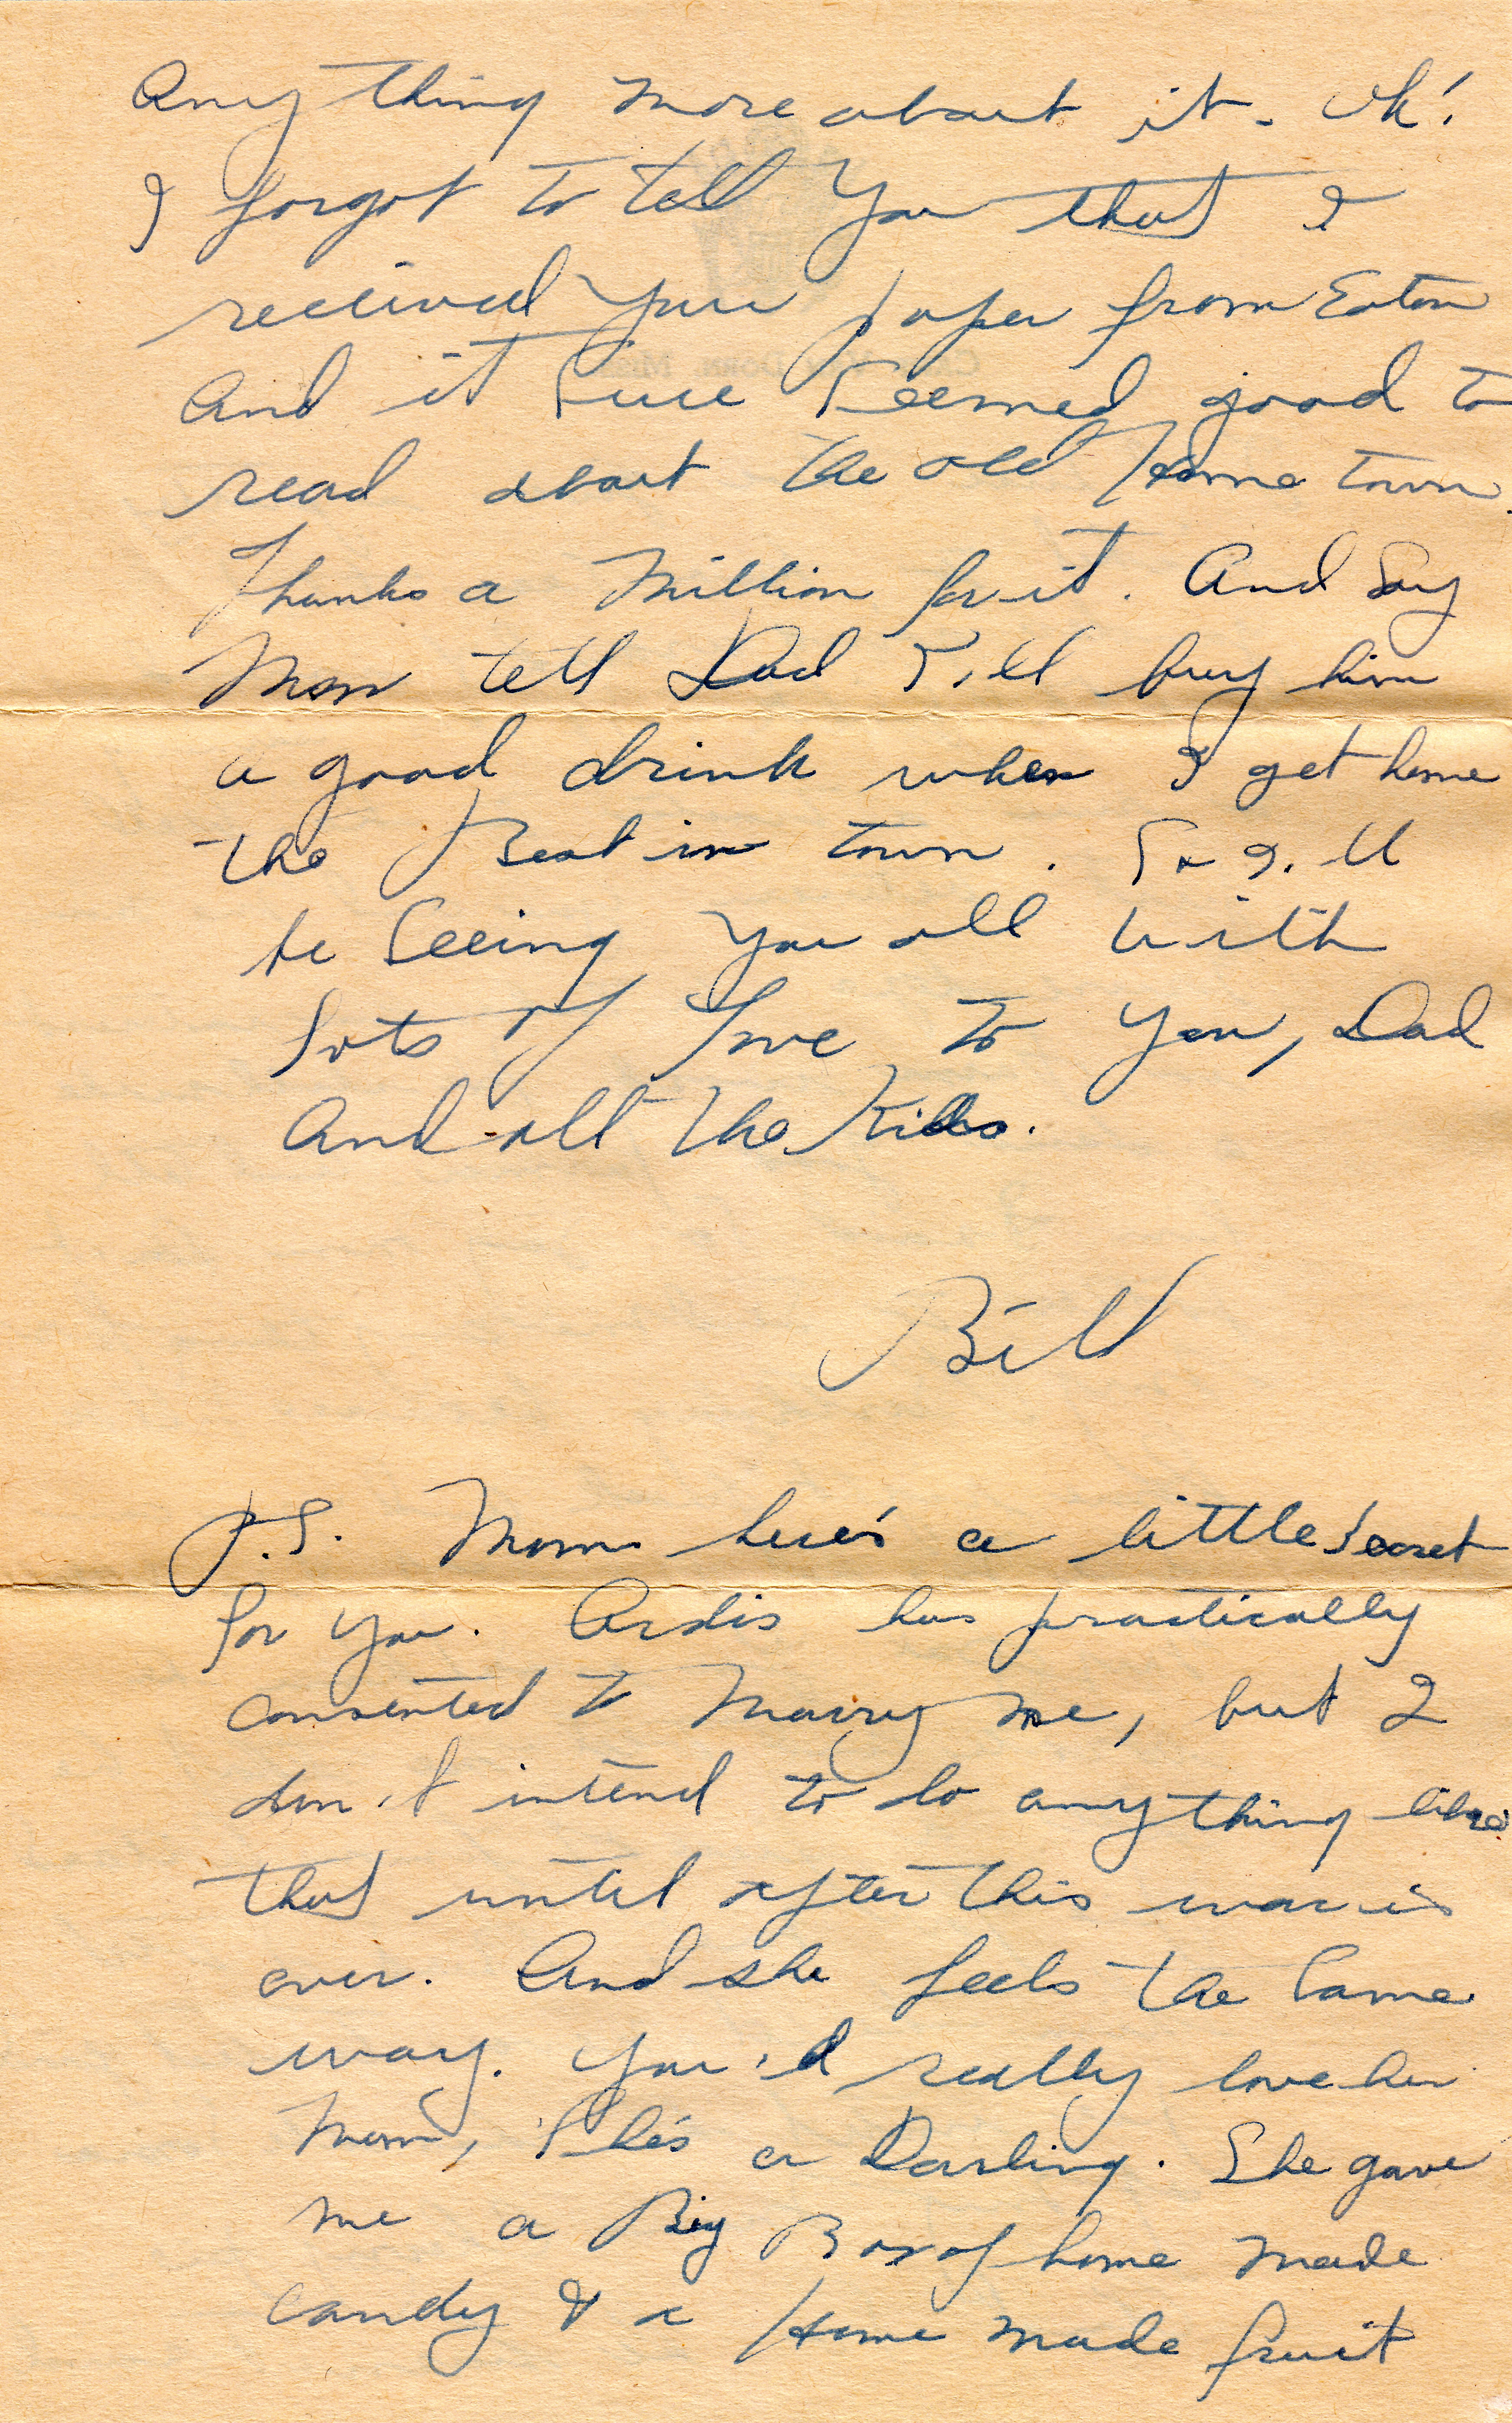 Anything more about it. Oh!
I forgot to tell you that I
received your paper from Eaton
And it sure seemed good to
read about the old home town.
Thanks a million for it. And Say
Mom tell Dad I'll buy him
a good drink when I get home
the Best in town. So I'll
be Seeing you all with
lots of love to you, Dad
And all the Kids.
Bill
P.S. Mom here's a little secret
for you. Ardis has practically
consented to marry me, but I
don't intend to do anything like
that until after this war is
over. And she feels the same
way. You'd really love her
Mom, She's a Darling. She gave
me a Big Box of home made
candy & a Home made fruit